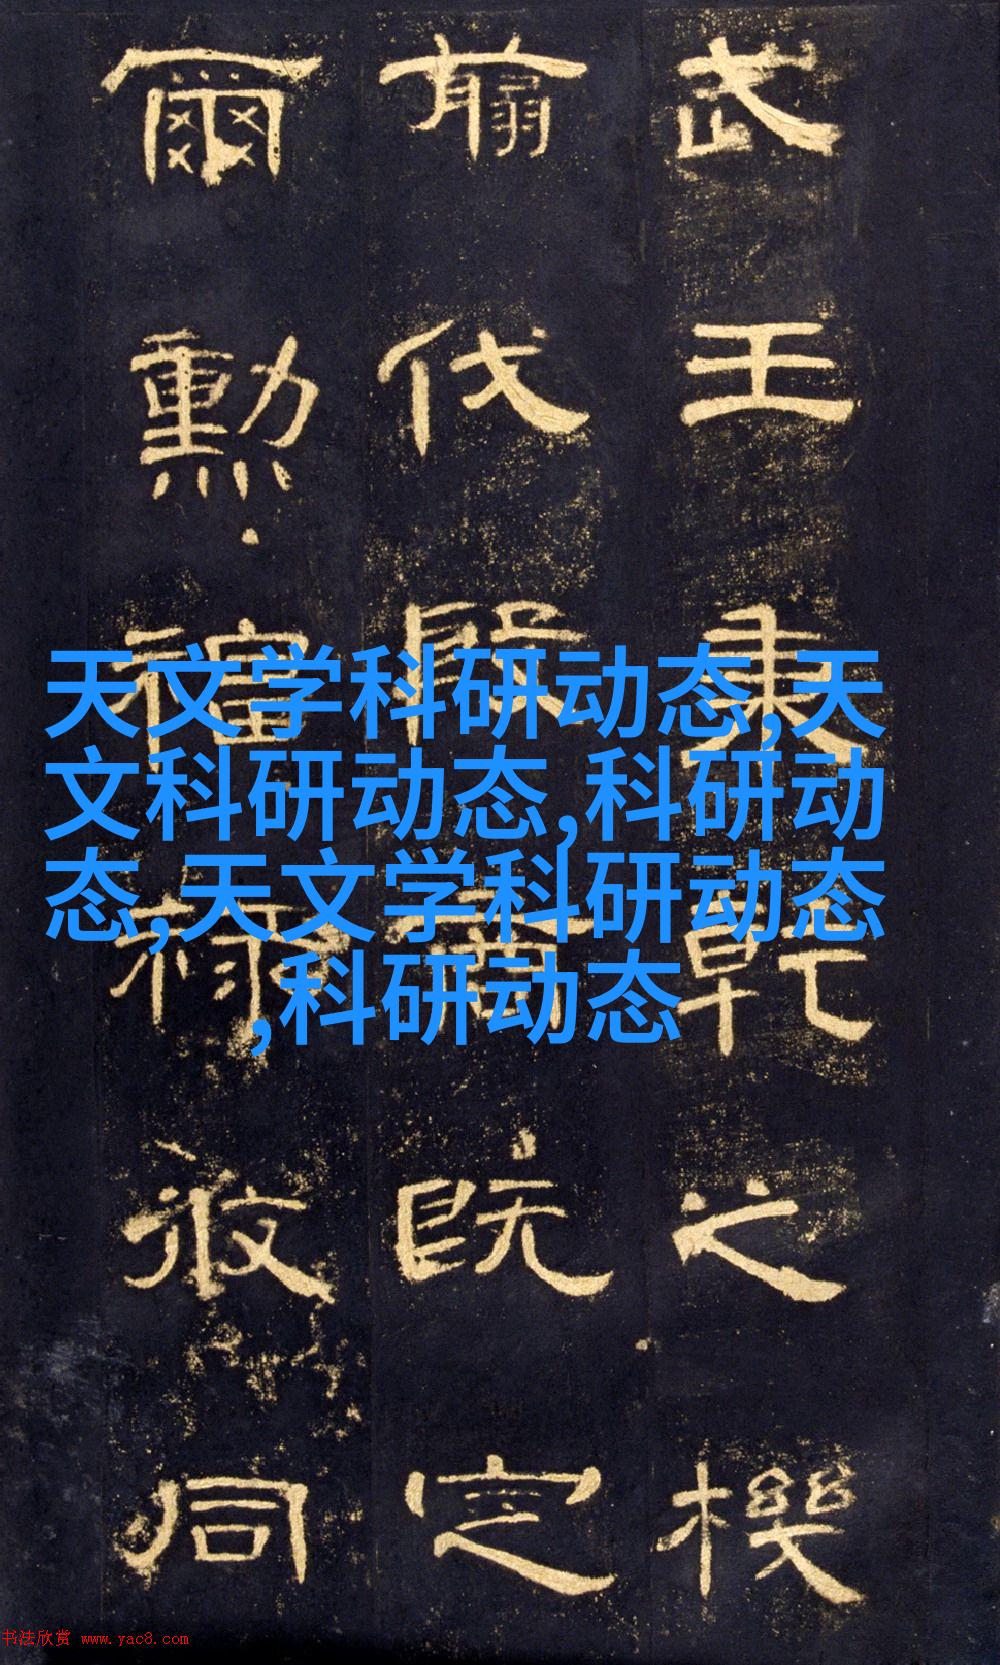 武王秉乾之機
翦伐殷商既定
爾勳福祿攸同
天文学科研动态,天
文科研动态,科研动
态,天文学科研动态
,科研动态
书法欣赏 www.yac8.com